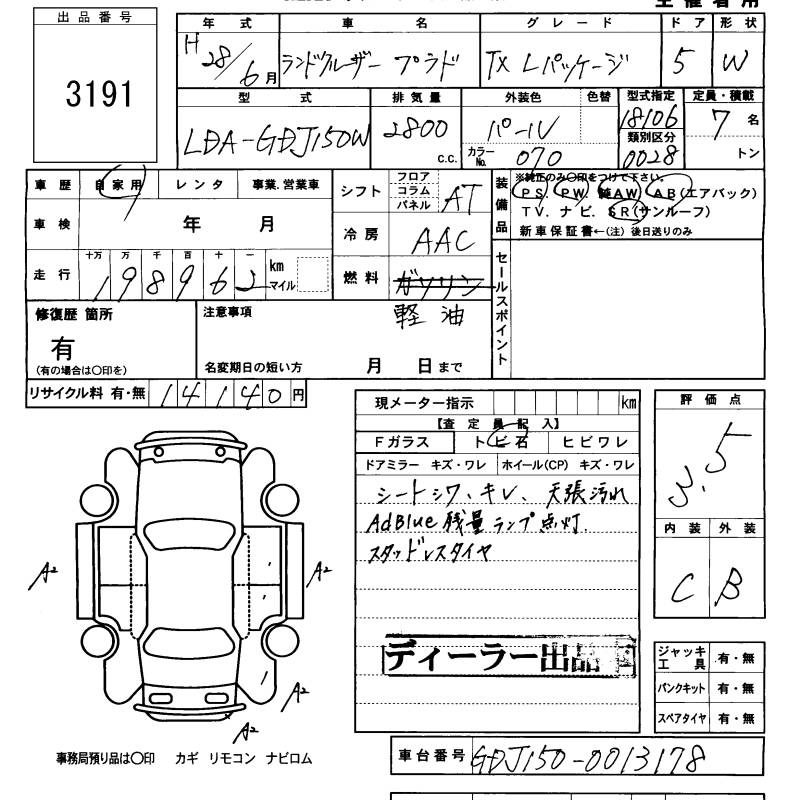 出品番号
3191
年式 車名 グレード ドア 形状
H28/6月 ランドクルーザー プラド TX Lパッケージ 5 W
型式 排気量 外装色 色替 型式指定 定員・積載
LDA-GDJ150W 2800 c.c. パール 18106 7名
カラーNo. 070 類別区分 0028 トン
車歴 自家用 レンタ 事業.営業車
シフト フロア コラム パネル AT
装備品 ※純正のみ○印をつけて下さい。
PS. PW. 純AW. AB(エアバック)
TV. ナビ. SR(サンルーフ)
新車保証書←(注) 後日送りのみ
車検 年 月
冷房 AAC
走行 十万 万 千 百 十 一
198962 km マイル
燃料 ガソリン
軽油
セールスポイント
修復歴 箇所
有
(有の場合は○印を)
注意事項
名変期日の短い方 月 日まで
リサイクル料 有・無 14140円
現メーター指示 km
【査定員記入】
Fガラス トビ石 ヒビワレ
ドアミラー キズ・ワレ ホイール(CP) キズ・ワレ
シートシワ、キレ、天張汚れ
AdBlue残量ランプ点灯.
スタッドレスタイヤ
ディーラー出品
評価点
3.5
内装 外装
C B
A2
A2
A2
A2
ジャッキ工具 有・無
パンクキット 有・無
スペアタイヤ 有・無
事務局預り品は○印 カギ リモコン ナビロム
車台番号 GDJ150-0013178